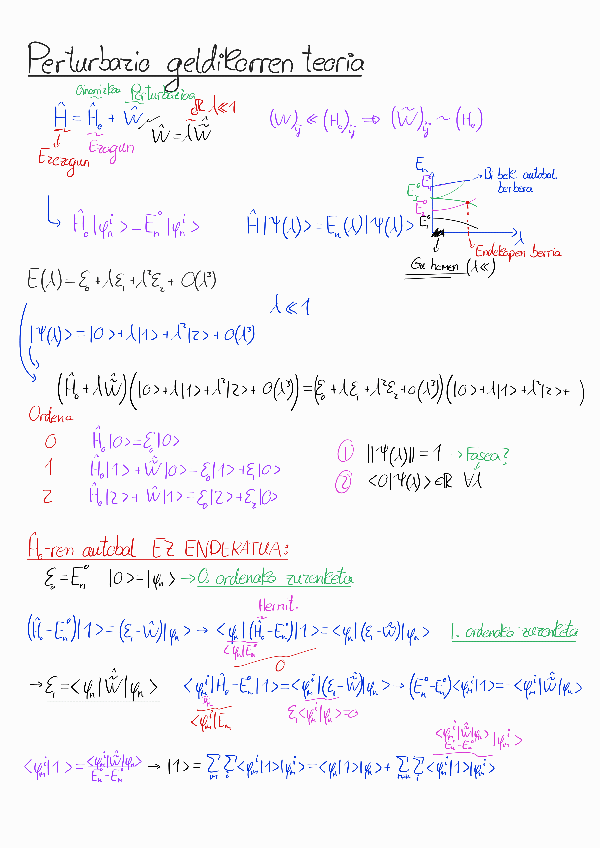 Perturbazio geldikorren teoria
Oinarrizkoa Perturbazioa
Ĥ = Ĥ₀ + Ŵ Ŵ = λŴ̃ λ≪1
Ezezagun Ezagun
(W)ᵢⱼ ≪ (H₀)ᵢⱼ ⇒ (W̃)ᵢⱼ ~ (H₀)
Ĥ₀|φₙⁱ> = Eₙ⁰|φₙⁱ> Ĥ|Ψ(λ)> = Eₙ(λ)|Ψ(λ)>
Eₙ
Bi bek. autobal. berbera
λ
Endekapen berria
Gu hemen (λ≪)
E(λ) = ε₀ + λε₁ + λ²ε₂ + O(λ³)
λ ≪ 1
|Ψ(λ)> = |0> + λ|1> + λ²|2> + O(λ³)
(Ĥ₀ + λŴ̃)(|0> + λ|1> + λ²|2> + O(λ³)) = (ε₀ + λε₁ + λ²ε₂ + O(λ³))(|0> + λ|1> + λ²|2> + )
Ordena
0 Ĥ₀|0> = ε₀|0>
1 Ĥ₀|1> + Ŵ̃|0> = ε₀|1> + ε₁|0>
2 Ĥ₀|2> + Ŵ̃|1> = ε₀|2> + ε₂|0>
① ||Ψ(λ)|| = 1 → Fasea?
② <0|Ψ(λ)> ∈ ℝ ∀λ
Ĥ₀-ren autobal EZ ENDEKATUA:
ε₀ = Eₙ⁰ |0> = |φₙ> → 0. ordenako zuzenketa
Hermit.
(Ĥ₀ - Eₙ⁰)|1> = (ε₁ - Ŵ̃)|φₙ> → <φₙ|(Ĥ₀ - Eₙ⁰)|1> = <φₙ|(ε₁ - Ŵ̃)|φₙ> 1. ordenako zuzenketa
<φₙ|Eₙ⁰
0
→ ε₁ = <φₙ|Ŵ̃|φₙ> <φₘⁱ|Ĥ₀ - Eₙ⁰|1> = <φₘⁱ|(ε₁ - Ŵ̃)|φₙ> → (Eₙ⁰ - Eₘ⁰)<φₘⁱ|1> = <φₘⁱ|Ŵ̃|φₙ>
<φₘⁱ|Eₘ ε₁<φₘⁱ|φₙ> = 0
<φₘⁱ|1> = <φₘⁱ|Ŵ̃|φₙ> / Eₙ⁰ - Eₘ⁰ → |1> = Σ Σ <φₘⁱ|1>|φₘⁱ> = <φₙ|1>|φₙ> + Σ Σ <φₘⁱ|1>|φₘⁱ>
<φₘⁱ|Ŵ̃|φₙ> / Eₙ⁰ - Eₘ⁰ |φₘⁱ>